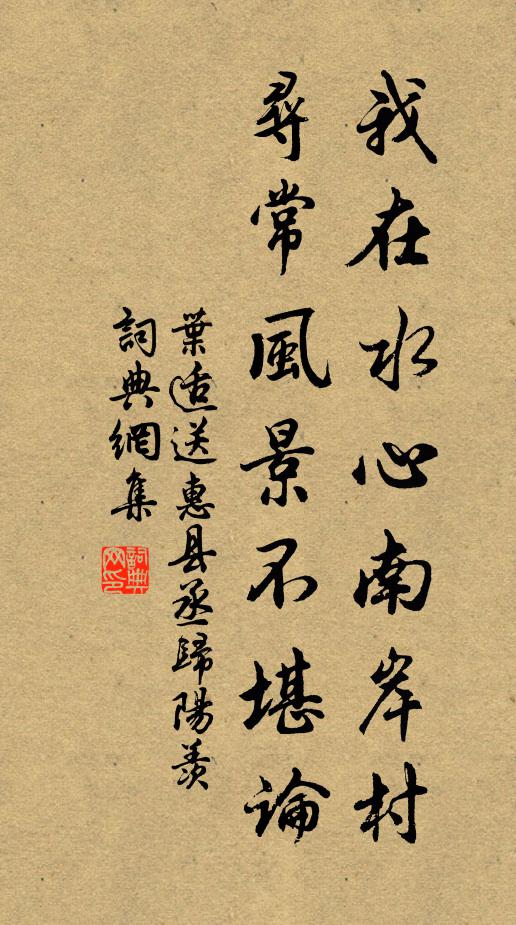 我在水心南岸村
尋常風景不堪論
葉适送惠县丞歸陽羨
詞典網集
詞典網印